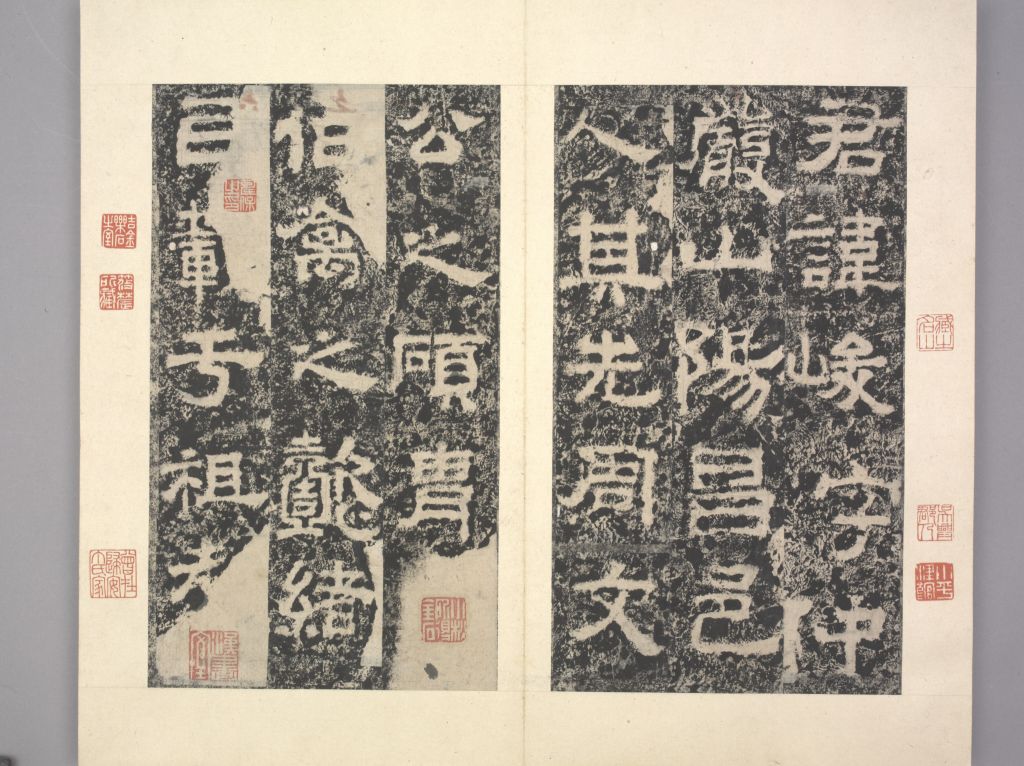 君諱峻字仲
嚴山陽昌邑
人其先周文
公之碩胄
伯禽之懿緒
以載于祖考